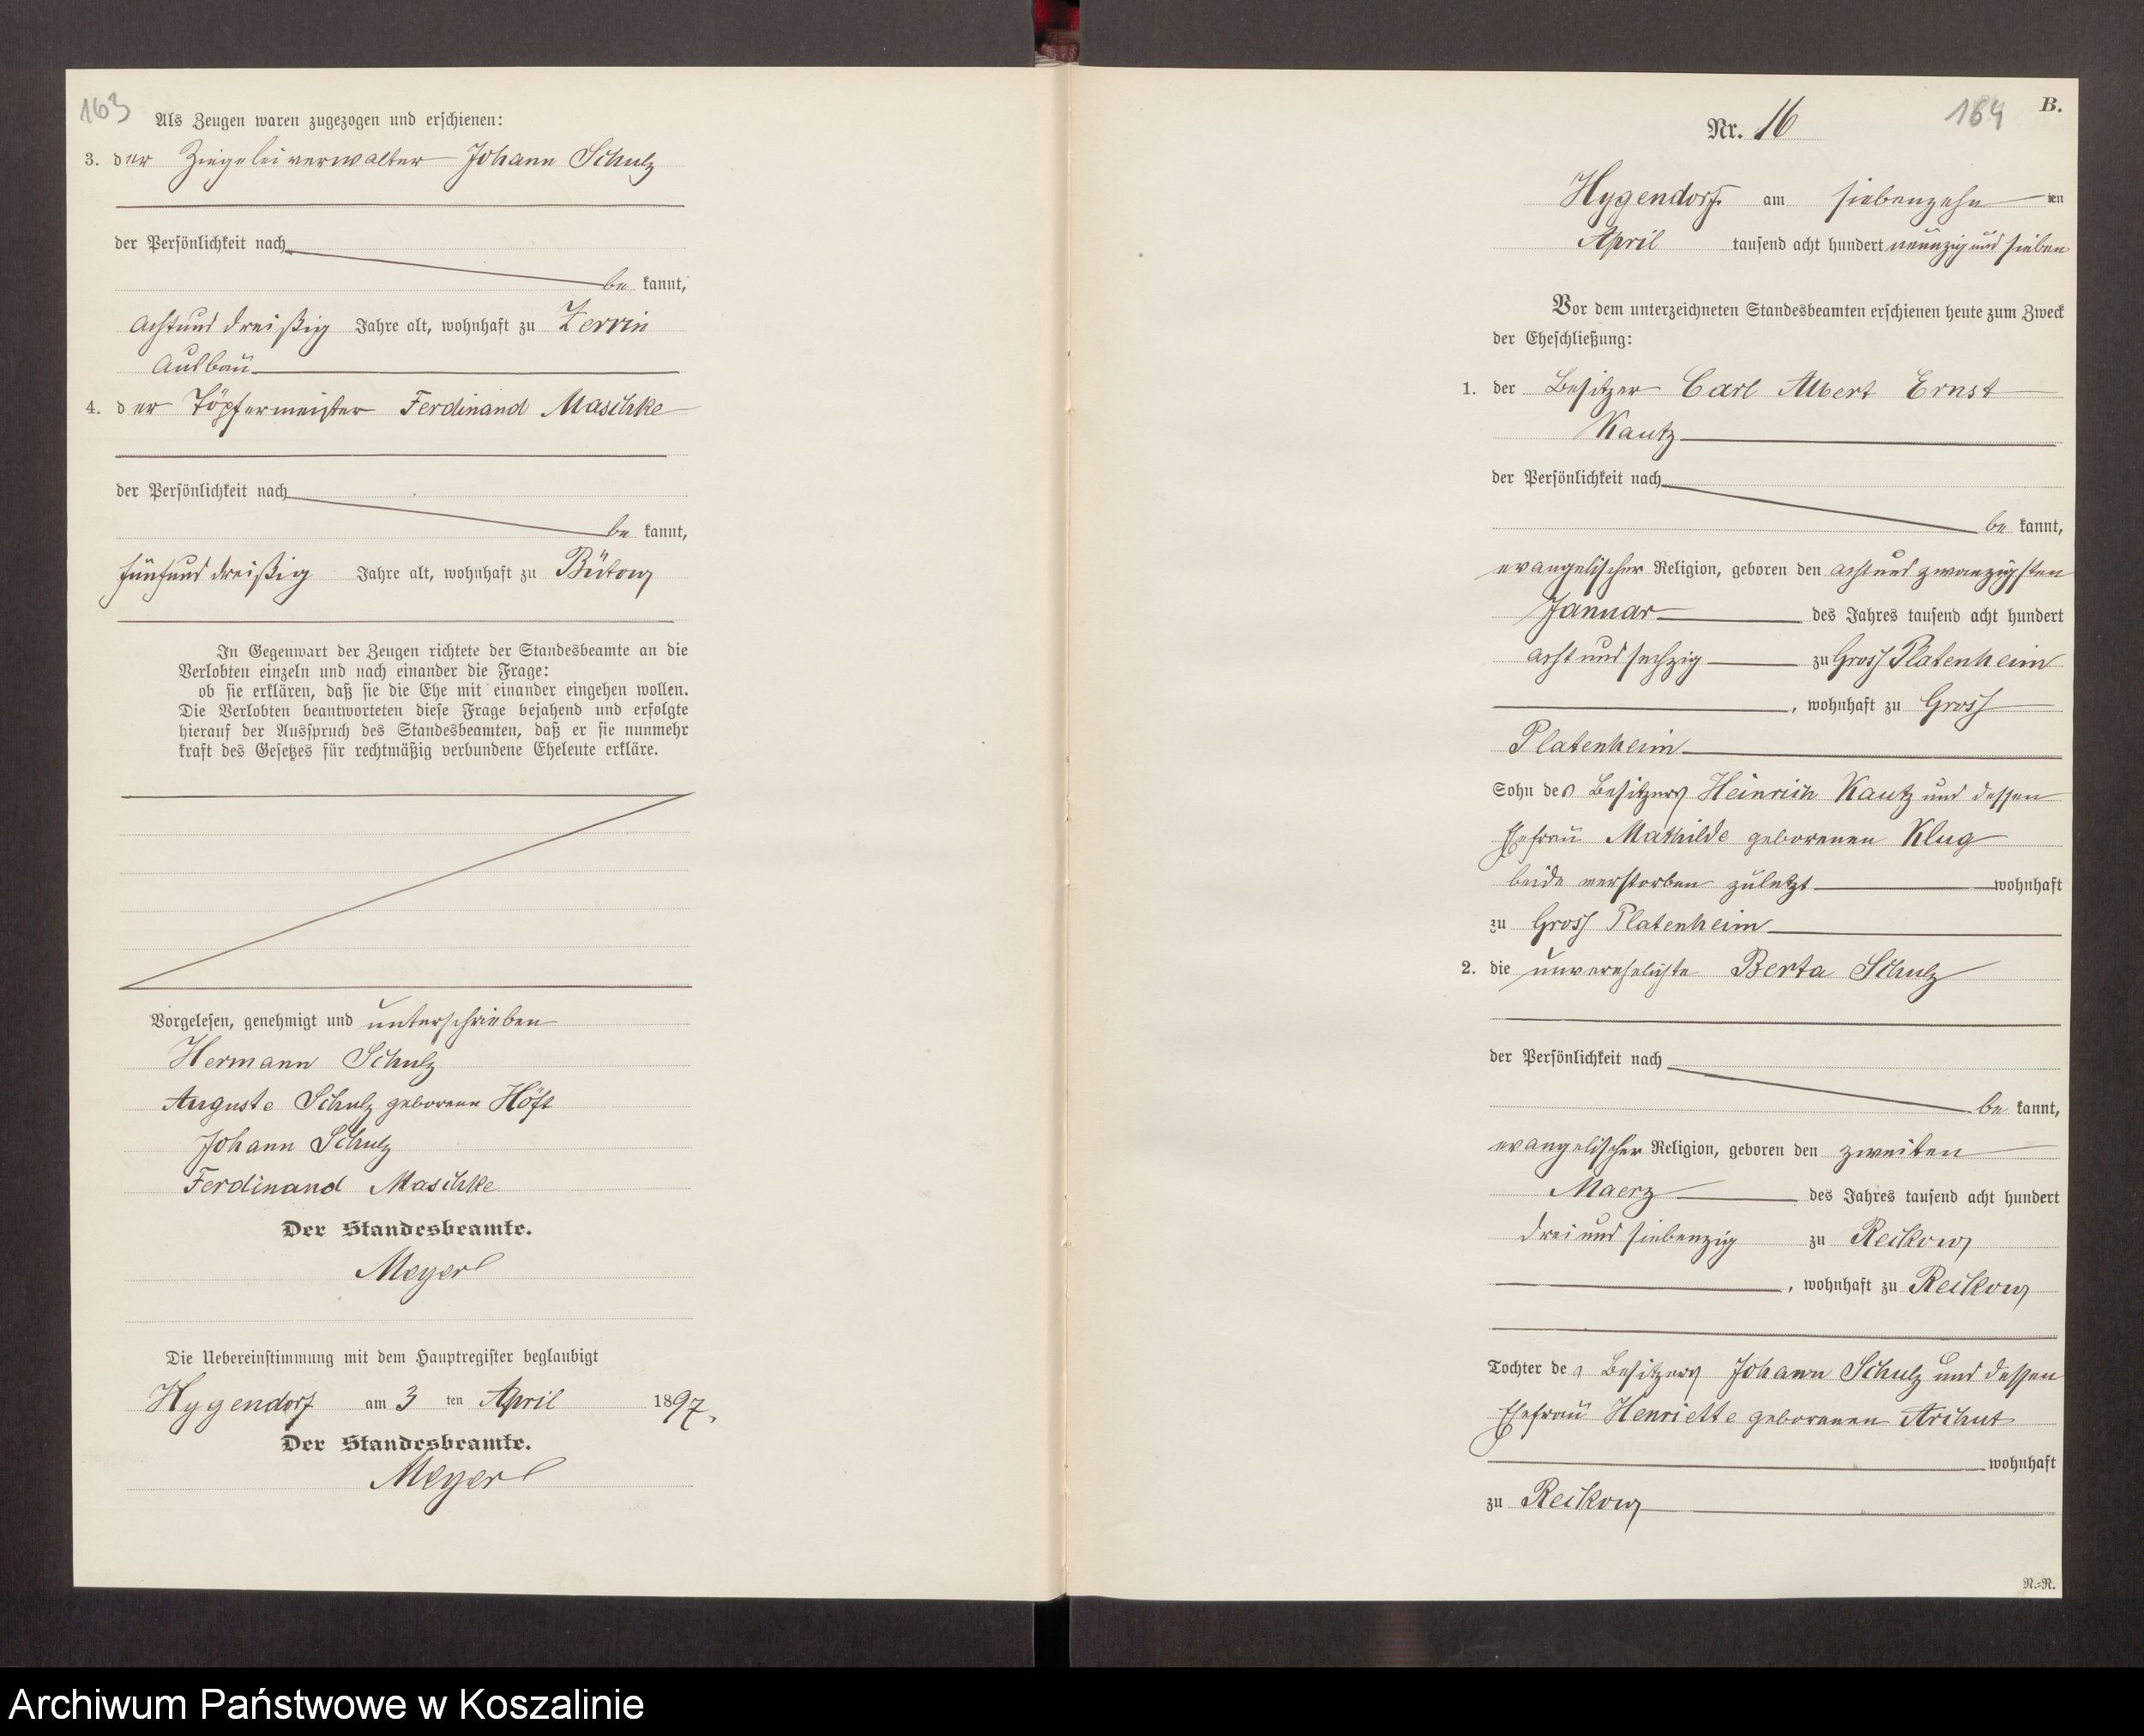 163
Als Zeugen waren zugezogen und erschienen:
3. der Ziegeleiverwalter Johann Schulz
der Persönlichkeit nach
be kannt,
achtund dreißig Jahre alt, wohnhaft zu Zerrin
Ausbau
4. der Töpfermeister Ferdinand Maschke
der Persönlichkeit nach
be kannt,
fünfund dreißig Jahre alt, wohnhaft zu Bütow
In Gegenwart der Zeugen richtete der Standesbeamte an die
Verlobten einzeln und nach einander die Frage:
ob sie erklären, daß sie die Ehe mit einander eingehen wollen.
Die Verlobten beantworteten diese Frage bejahend und erfolgte
hierauf der Ausspruch des Standesbeamten, daß er sie nunmehr
kraft des Gesetzes für rechtmäßig verbundene Eheleute erkläre.
Vorgelesen, genehmigt und unterschrieben
Hermann Schulz
Auguste Schulz geborene Höft
Johann Schulz
Ferdinand Maschke
Der Standesbeamte.
Meyer
Die Uebereinstimmung mit dem Hauptregister beglaubigt
Hygendorf am 3 ten April 1897.
Der Standesbeamte.
Meyer
164
B.
Nr. 16
Hygendorf am siebenzehn ten
April tausend acht hundert neunzig und sieben
Vor dem unterzeichneten Standesbeamten erschienen heute zum Zweck
der Eheschließung:
1. der Besitzer Carl Albert Ernst
Kautz
der Persönlichkeit nach
be kannt,
evangelischer Religion, geboren den acht und zwanzigsten
Januar des Jahres tausend acht hundert
acht und sechzig zu Gross Platenheim
, wohnhaft zu Gross
Platenheim
Sohn des Besitzers Heinrich Kautz und dessen
Ehefrau Mathilde geborenen Klug
beide verstorben zuletzt wohnhaft
zu Gross Platenheim
2. die unverehelichte Berta Schulz
der Persönlichkeit nach
be kannt,
evangelischer Religion, geboren den zweiten
Maerz des Jahres tausend acht hundert
drei und siebenzig zu Reckow
, wohnhaft zu Reckow
Tochter des Besitzers Johann Schulz und dessen
Ehefrau Henriette geborenen Archut
wohnhaft
zu Reckow
N.=R.
Archiwum Państwowe w Koszalinie